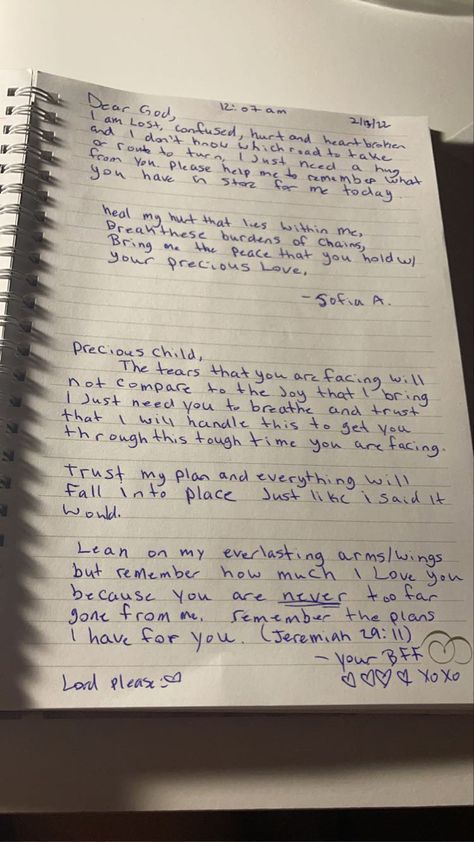 Dear God, 12:07am 2/13/22
I am Lost, confused, hurt and heartbroken
and I don't know which road to take
or route to turn, I Just need a hug
from you please help me to remember what
you have in stor for me today.
heal my hurt that lies within me,
Break these burdens of chains,
Bring me the peace that you hold w/
your precious Love,
- Sofia A.
Precious Child,
The tears that you are facing will
not compare to the Joy that I bring
I Just need you to breathe and trust
that I will handle this to get you
through this tough time you are facing.
Trust my plan and everything will
Fall into place Just like i said it
would.
Lean on my everlasting arms/wings
but remember how much I Love you
because you are never too far
gone from me. remember the plans
I have for you. (Jeremiah 29:11)
- Your BFF
Lord please:♡ ♡♡♡♡ XOXO